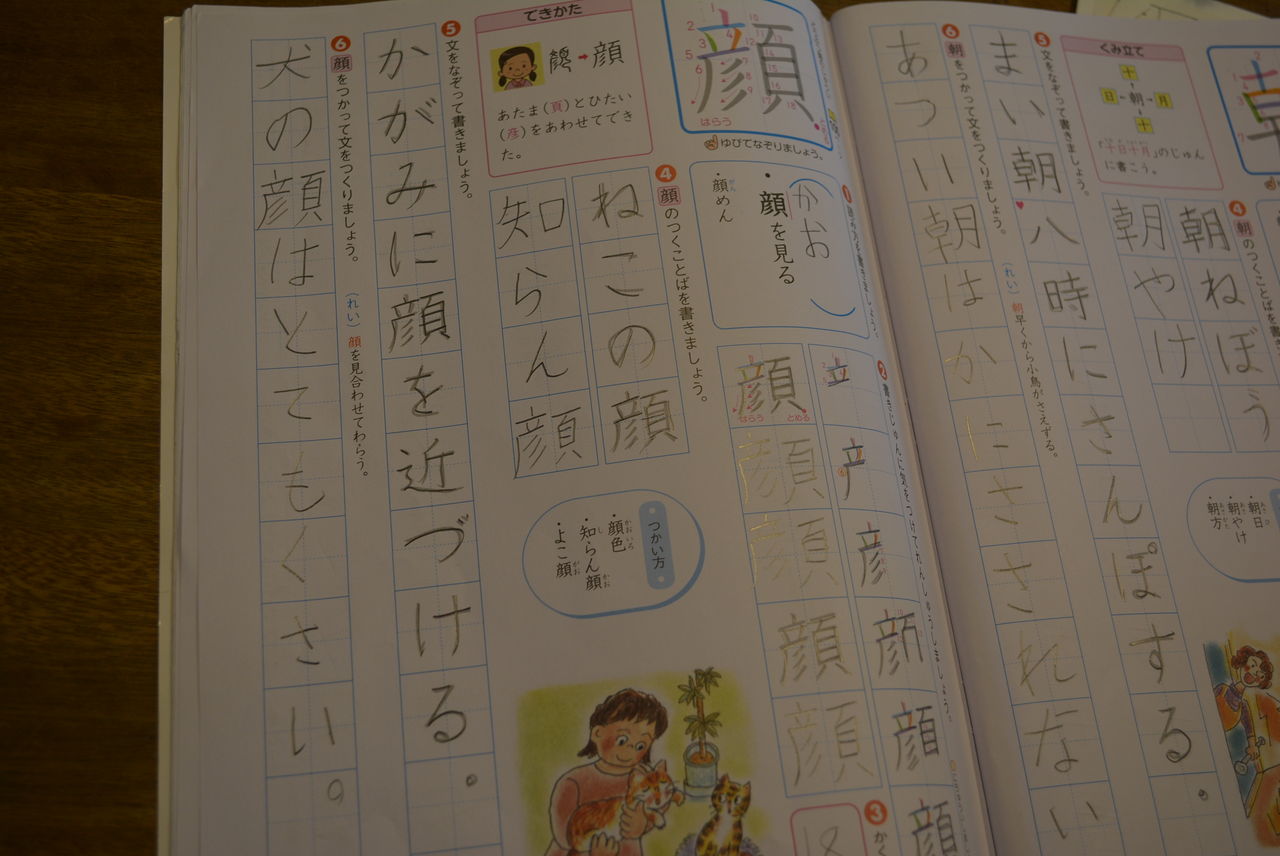 くみ立て
十
日
朝
月
十
「十日十月」のじゅん
に書こう。
❹ 朝のつくことばを書き
朝ねぼう
朝やけ
・朝日
・朝やけ
・朝方
❺ 文をなぞって書きましょう。
まい朝八時にさんぽする。
❻ 朝をつかって文をつくりましょう。
(れい) 朝早くから小鳥がさえずる。
あつい朝はかにさされない
顔
はらう
ゆびでなぞりましょう。
できかた
顔
あたま(頁)とひたい
(彦)をあわせてでき
た。
❶
かお
・顔を見る
・顔めん
❷ 書きじゅんに気をつけてれんしゅうしましょう。
顔
はらう
とめる
顔
顔
顔
顔
❸ かく
18
❹ 顔のつくことばを書きましょう。
ねこの顔
知らん顔
つかい方
・顔色
・知らん顔
・よこ顔
❺ 文をなぞって書きましょう。
かがみに顔を近づける。
❻ 顔をつかって文をつくりましょう。
(れい) 顔を見合わせてわらう。
犬の顔はとてもくさい。